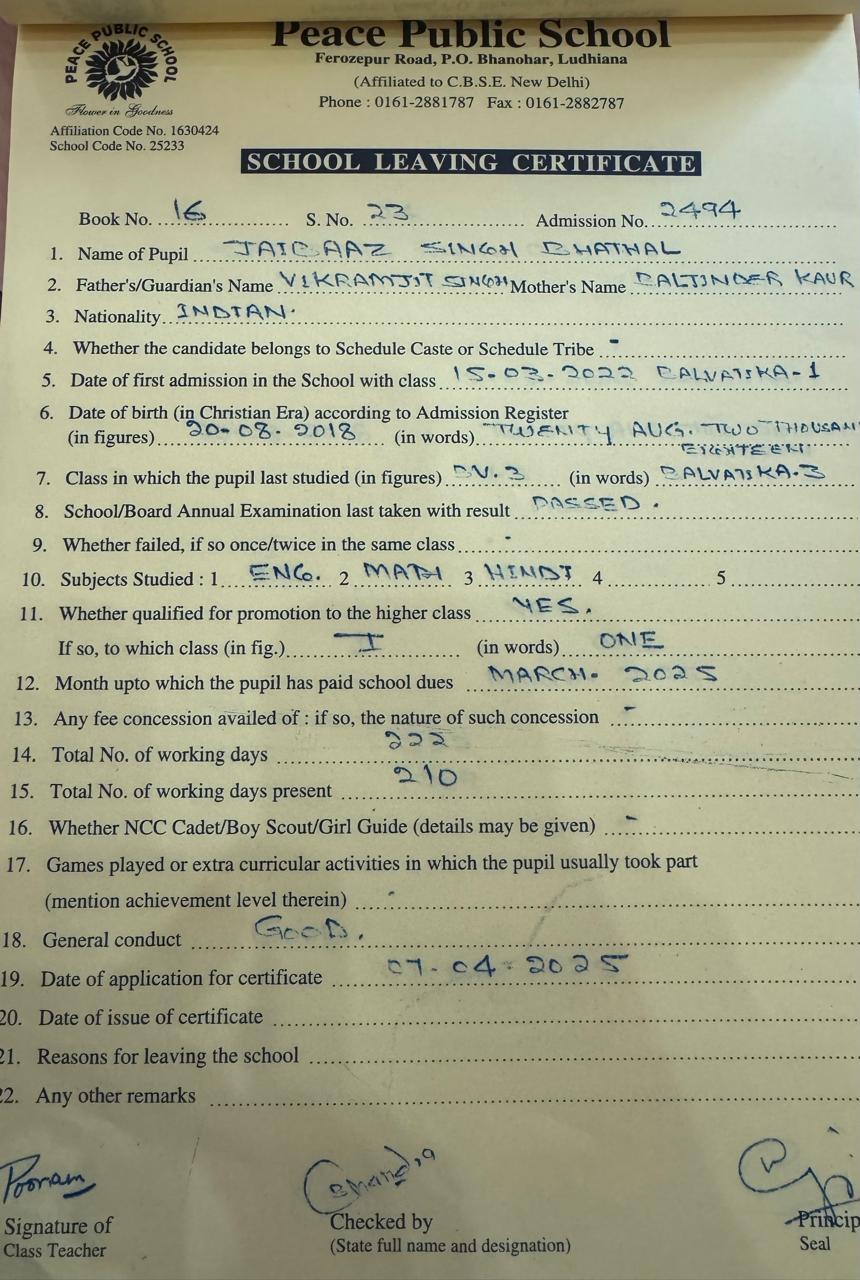 Peace Public School
PEACE PUBLIC SCHOOL
Flower in Goodness
Ferozepur Road, P.O. Bhanohar, Ludhiana
(Affiliated to C.B.S.E. New Delhi)
Phone : 0161-2881787 Fax : 0161-2882787
Affiliation Code No. 1630424
School Code No. 25233
SCHOOL LEAVING CERTIFICATE
Book No. 16 S. No. 23 Admission No. 2494
1. Name of Pupil SINGH BHATHAL
2. Father's/Guardian's Name VIKRAMJIT SINGH Mother's Name BALJINDER KAUR
3. Nationality INDIAN.
4. Whether the candidate belongs to Schedule Caste or Schedule Tribe -
5. Date of first admission in the School with class 15-03-2022 BALVATIKA-1
6. Date of birth (in Christian Era) according to Admission Register
(in figures) 20-08-2018 (in words) TWENTY AUG. TWO THOUSAN
EIGHTEEN
7. Class in which the pupil last studied (in figures) BV.3 (in words) BALVATIKA-3
8. School/Board Annual Examination last taken with result PASSED.
9. Whether failed, if so once/twice in the same class -
10. Subjects Studied : 1 ENG. 2 MATH 3 HINDI 4 5
11. Whether qualified for promotion to the higher class YES.
If so, to which class (in fig.) I (in words) ONE
12. Month upto which the pupil has paid school dues MARCH. 2025
13. Any fee concession availed of : if so, the nature of such concession -
14. Total No. of working days 222
15. Total No. of working days present 210
16. Whether NCC Cadet/Boy Scout/Girl Guide (details may be given) -
17. Games played or extra curricular activities in which the pupil usually took part
(mention achievement level therein) -
18. General conduct GOOD.
19. Date of application for certificate 07-04-2025
20. Date of issue of certificate
21. Reasons for leaving the school
22. Any other remarks
Poonam
Signature of Checked by Princip
Class Teacher (State full name and designation) Seal